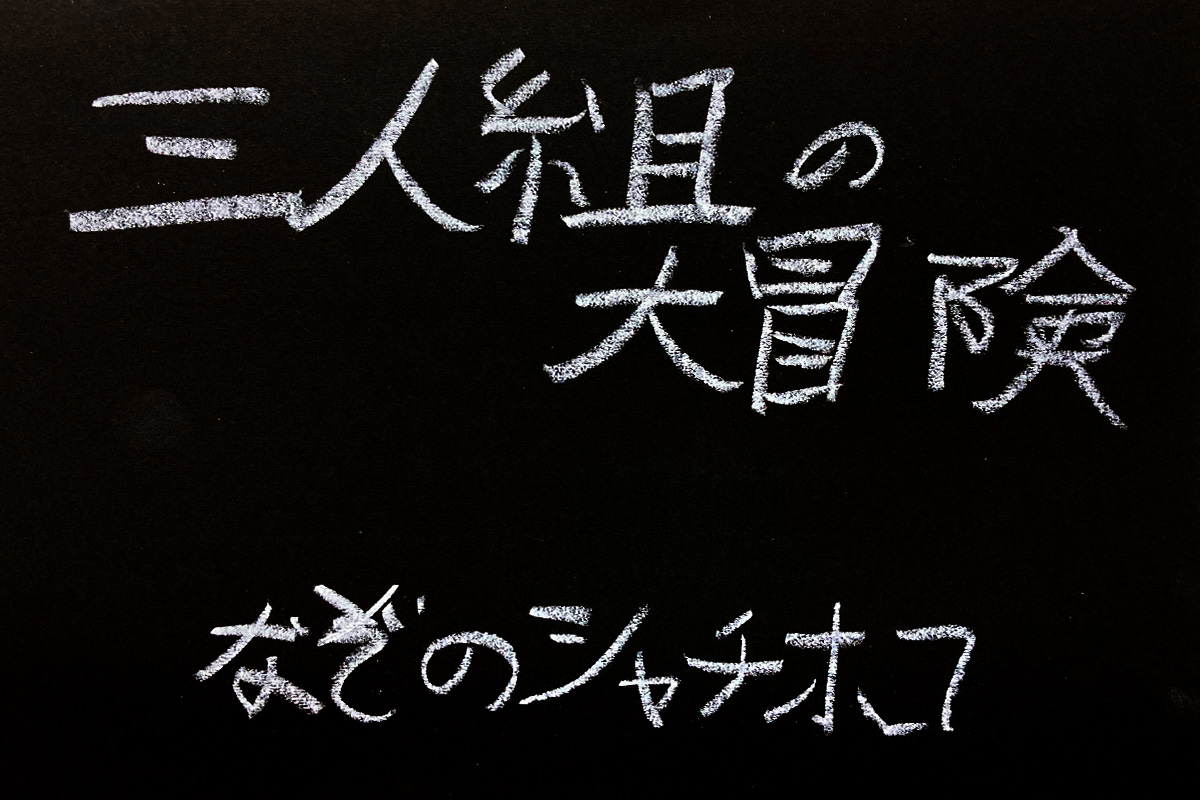 三人組の
大冒険
なぞのシャチホコ